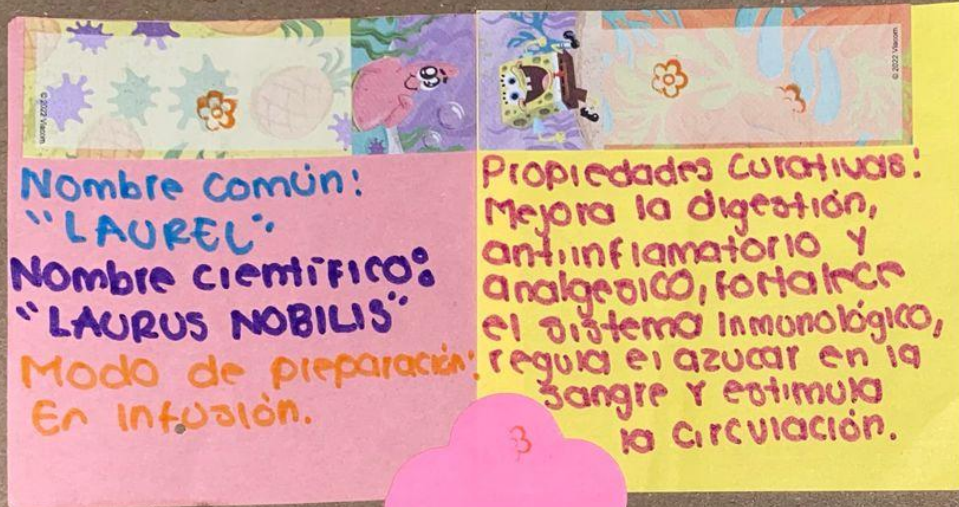 © 2022 Viacom
© 2022 Viacom
Nombre Común:
"LAUREL".
Nombre científico:
"LAURUS NOBILIS"
Modo de preparación:
En infusión.
Propiedades Curativas:
Mejora la digestión,
antiinflamatorio y
analgesico, fortalece
el sistema inmunológico,
regula el azucar en la
sangre y estimula
la circulación.
3